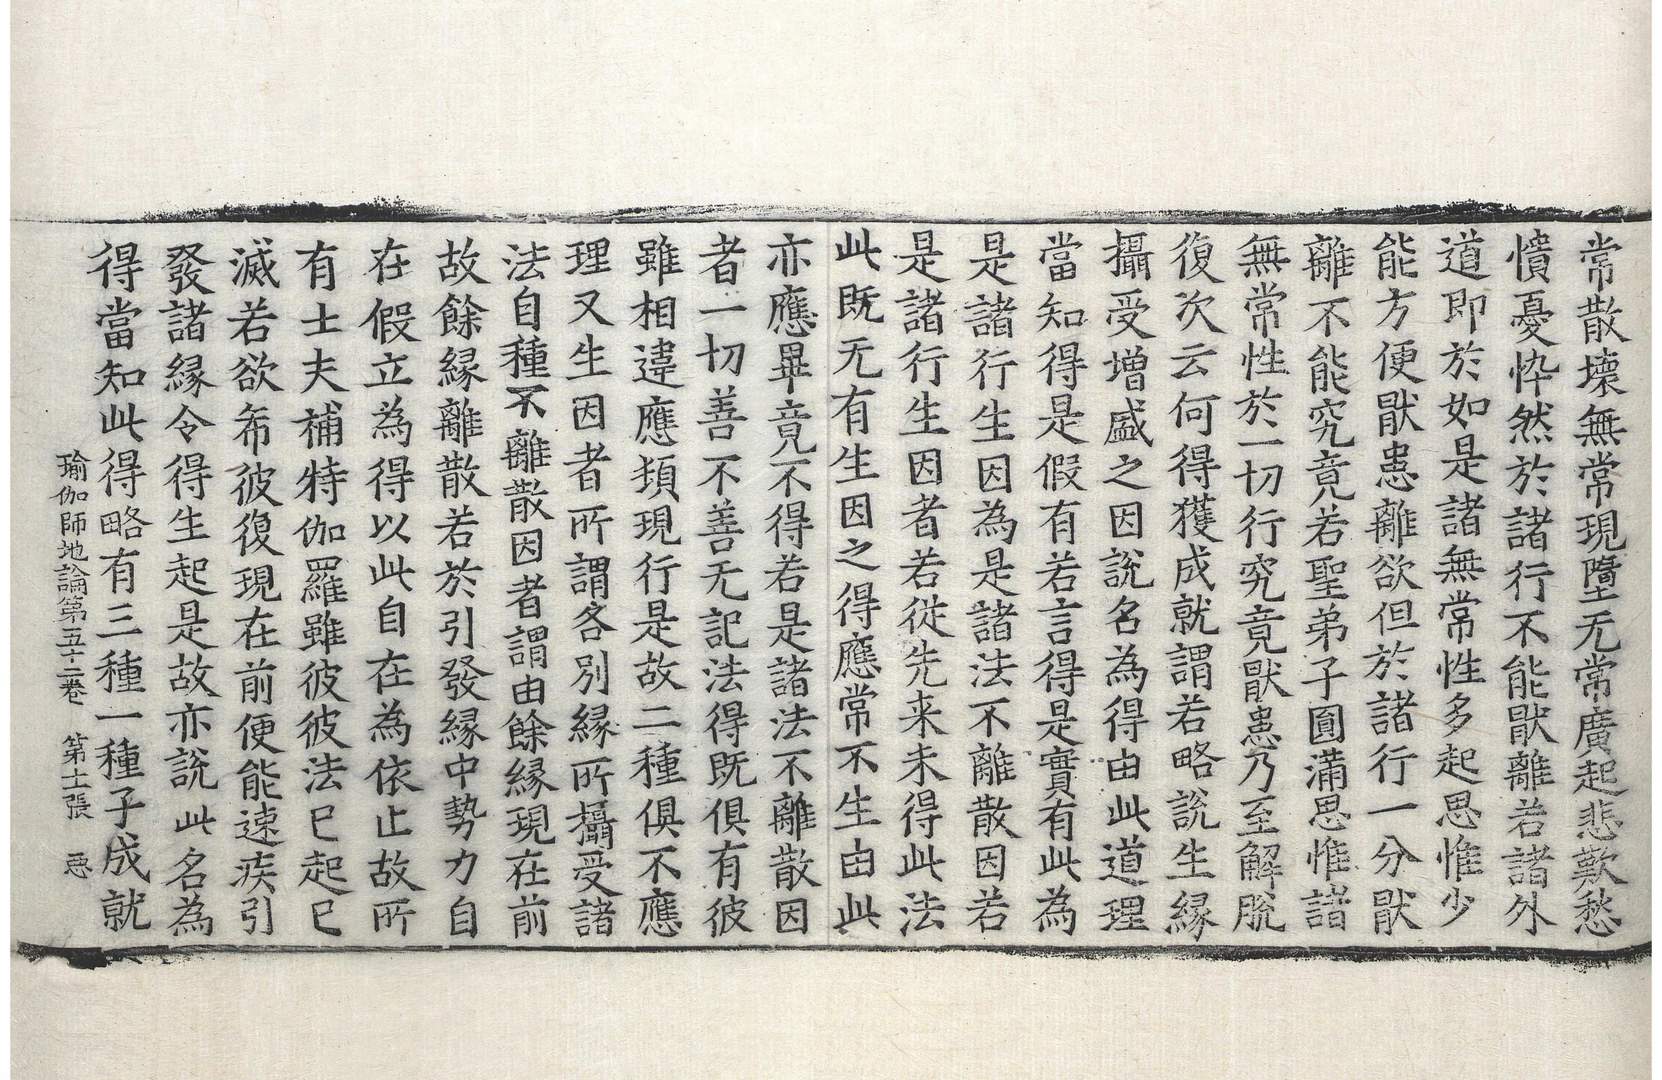 常散壞無常現墮无常廣起悲歎愁
憒憂忰然於諸行不能猒離若諸外
道即於如是諸無常性多起思惟少
能方便猒患離欲但於諸行一分猒
離不能究竟若聖弟子圓滿思惟諸
無常性於一切行究竟猒患乃至解脫
復次云何得獲成就謂若略說生緣
攝受增盛之因說名為得由此道理
當知得是假有若言得是實有此為
是諸行生因為是諸法不離散因若
是諸行生因者若從先来未得此法
此既无有生因之得應常不生由此
亦應畢竟不得若是諸法不離散因
者一切善不善无記法得既俱有彼
雖相違應頓現行是故二種俱不應
理又生因者所謂各別緣所攝受諸
法自種不離散因者謂由餘緣現在前
故餘緣離散若於引發緣中勢力自
在假立為得以此自在為依止故所
有士夫補特伽羅雖彼彼法已起已
滅若欲希彼復現在前便能速疾引
發諸緣令得生起是故亦說此名為
得當知此得略有三種一種子成就
瑜伽師地論第五十二卷 第十二張 惡